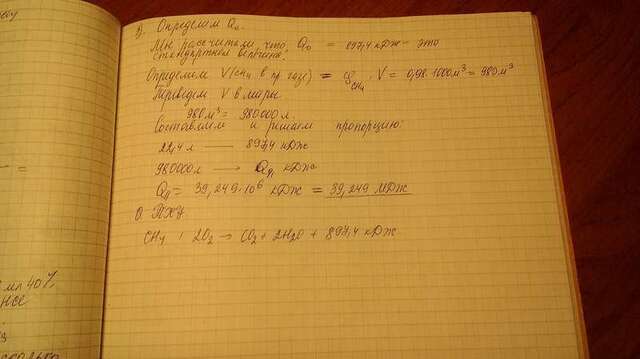 еву
=
мл 40%
HCl
3). Определим Q₀
Мы рассчитали, что Q₀ = 897,4 кДж - это
стандартная величина.
Определим V(CH₄ в пр. газе) = φ CH₄ · V = 0,98 · 1000 м³ = 980 м³
Переведём V в литры
980 м³ = 980000 л.
Составляем и решаем пропорцию:
22,4 л —— 897,4 кДж
980000 л —→ Qд, кДж
Qд = 39,249·10⁶ кДж = 39,249 МДж
CH₄ + 2O₂ → CO₂ + 2H₂O + 897,4 кДж